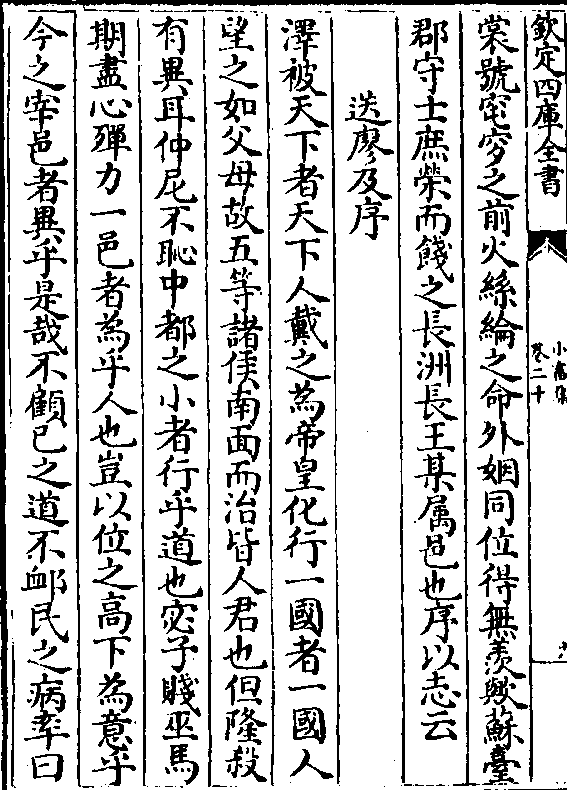 欽定四庫全書
小畜集
卷二十
裳號窀穸之前火絲綸之命外姻同位得無羨歟蘇臺
郡守士庶榮而餞之長洲長王某属邑也序以志云
送廖及序
澤被天下者天下人戴之為帝皇化行一國者一國人
望之如父母故五等諸侯南面而治皆人君也但隆殺
有異耳仲尼不恥中都之小者行乎道也宓子賤巫馬
期盡心殫力一邑者為乎人也豈以位之高下為意乎
今之宰邑者異乎是哉不顧已之道不䘏民之病率曰